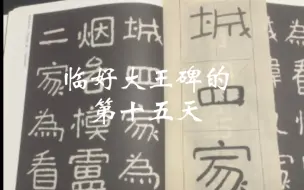 临好大王碑的
第十五天
城四家
城四家為
烟各模盧
二家為看